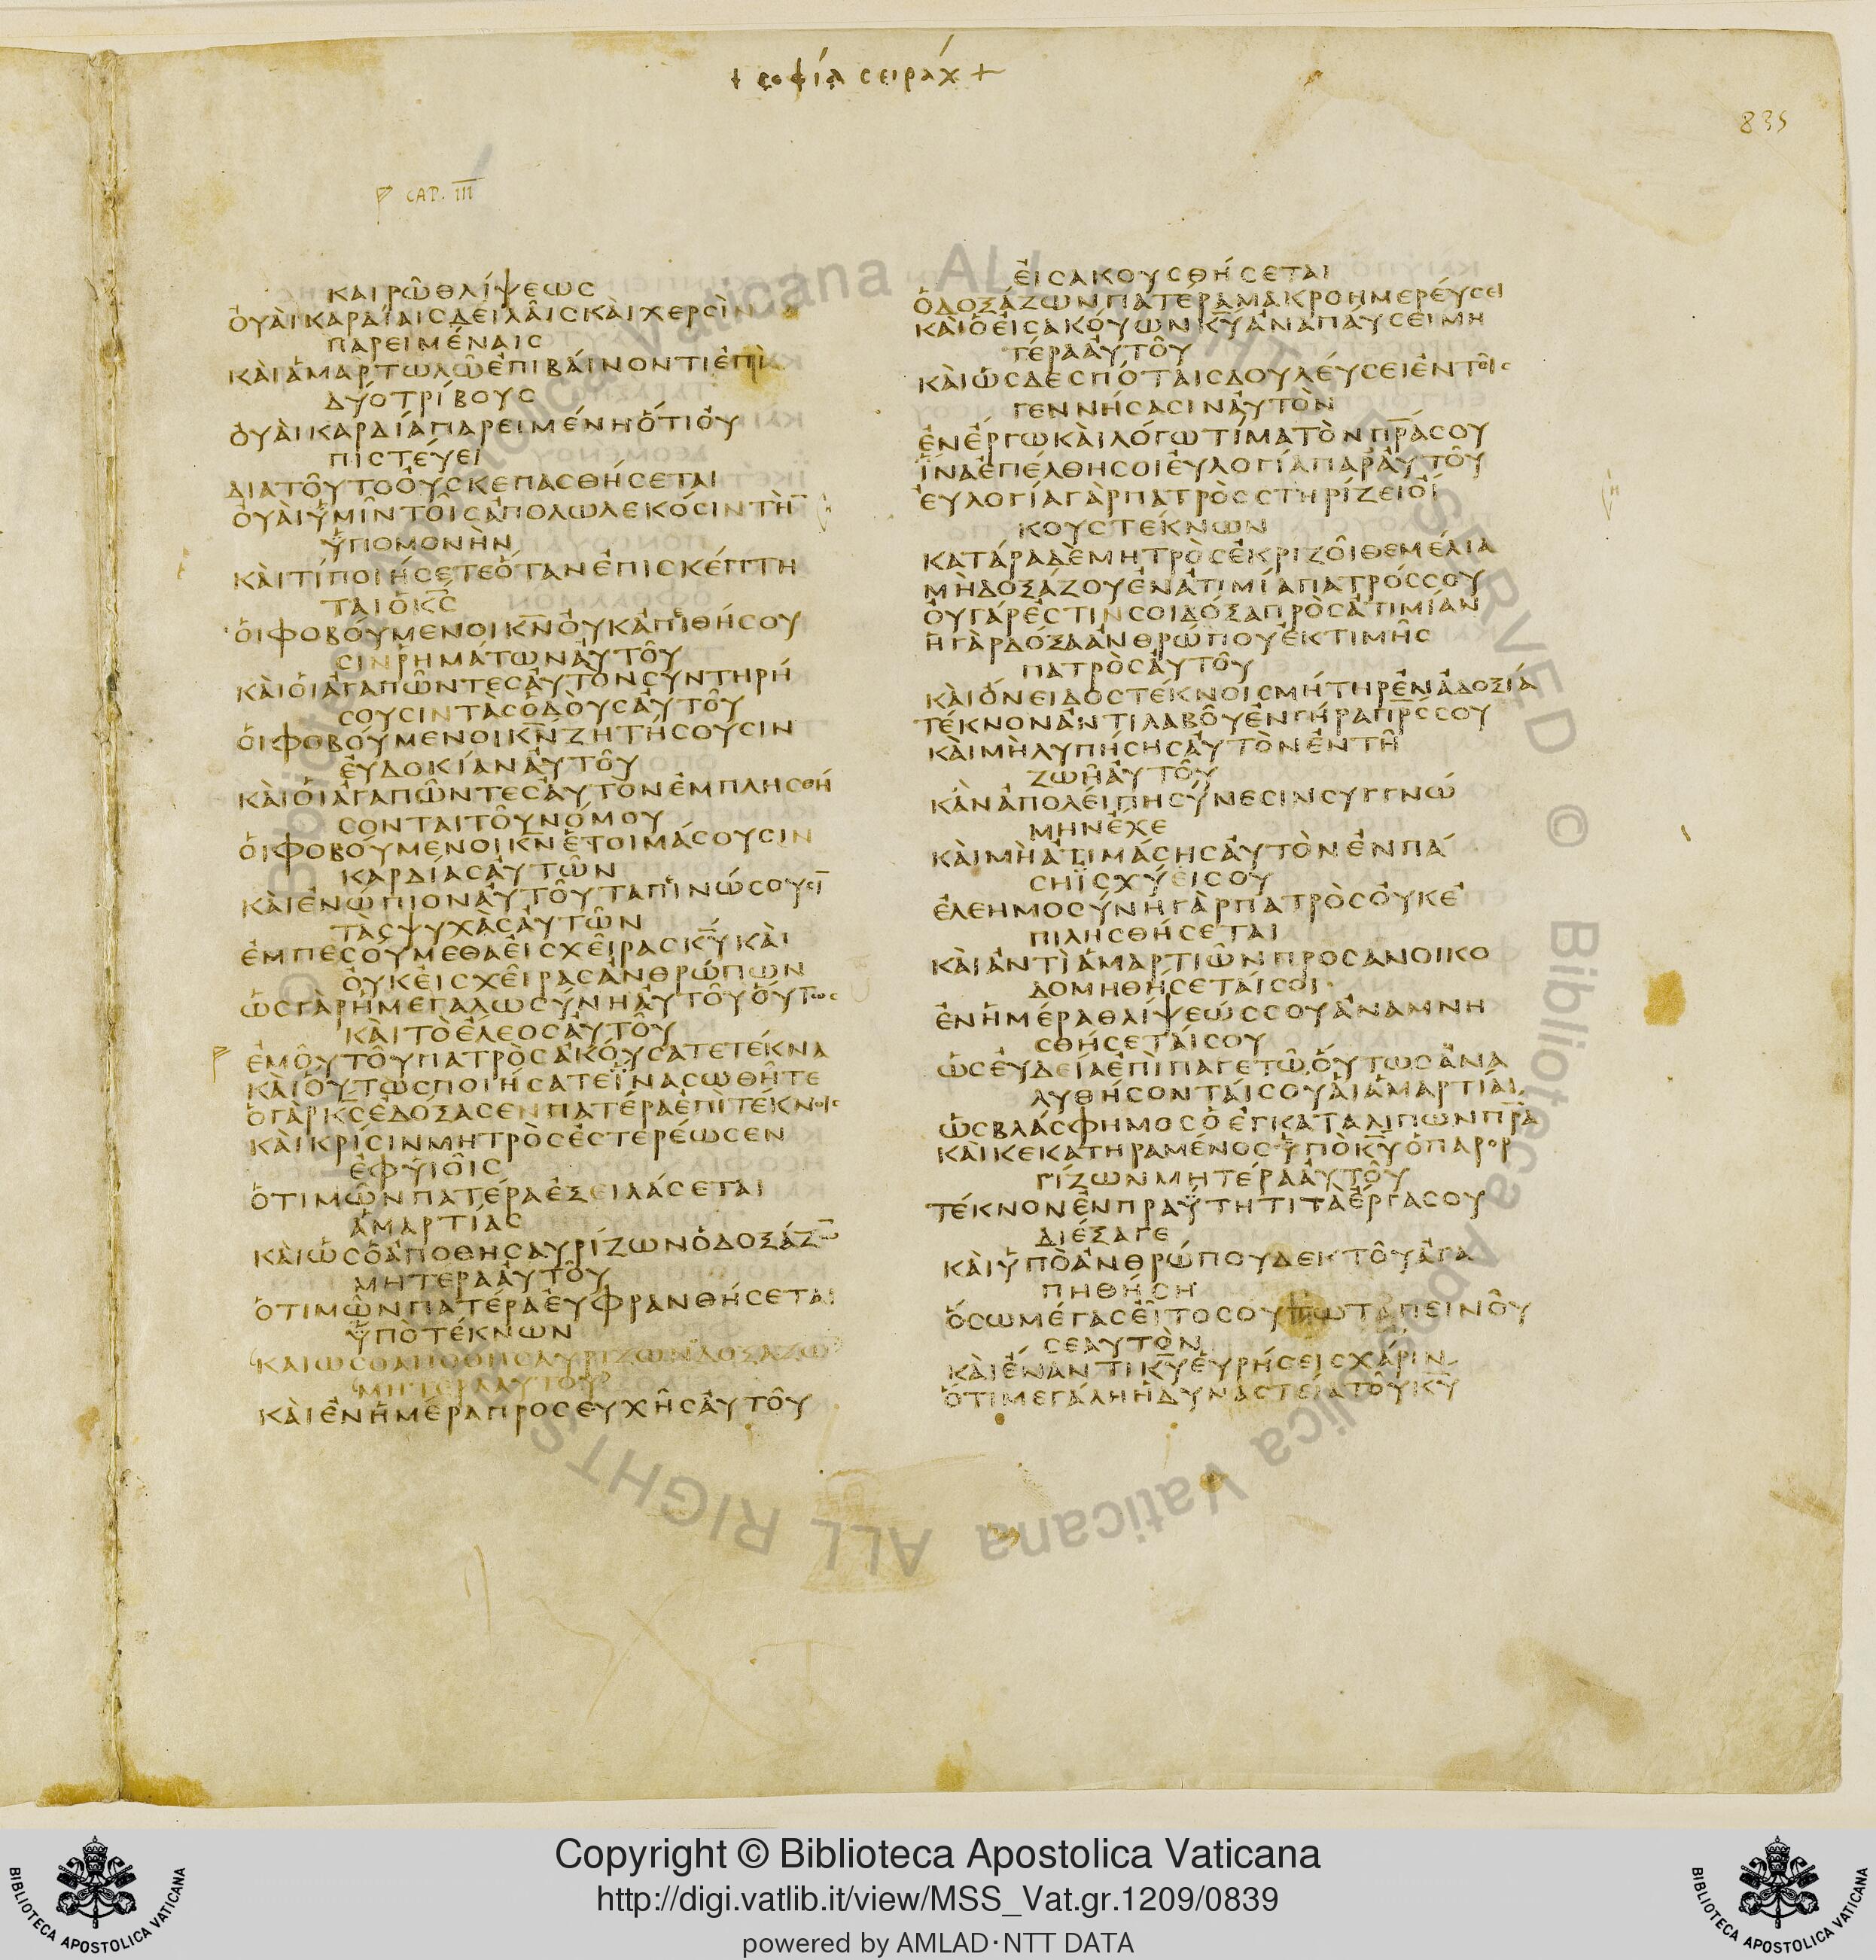 + σοφία σειράχ +
835
CAP. III
καιρῶ θλίψεως
ὀυὰι καρδίαις δειλᾶις κὰι χερσὶν
παρειμέναις
κὰι ἁμαρτωλῶ ἐπιβάινοντι ἐπὶ
δύο τρίβους
ὀυὰι καρδία παρειμένη ὅτι ὀυ
πιστέυει
διατοῦτο ὀυ σκεπασθήσεται
ὀυὰι ὑμῖν τοῖς ἀπολωλεκόσιν τὴ̅
ὑπομονὴν
κὰι τί ποιήσετε ὅταν ἐπισκέπτη
ται ὁ κ̅ς̅
ὁι φοβόυμενοι κ̅ν̅ ὀυκ ἀπιθήσου
σιν ῥημάτων ἀυτοῦ
κὰι ὁι ἀγαπῶντες ἀυτὸν συντηρή
σουσιν τὰς ὁδὸυς ἀυτοῦ
ὁι φοβόυμενοι κ̅ν̅ ζητήσουσιν
ἐυδοκίαν ἀυτοῦ
κὰι ὁι ἀγαπῶντες ἀυτὸν ἐμπλησθή
σονται τοῦ νόμου
ὁι φοβόυμενοι κ̅ν̅ ἑτοιμάσουσιν
καρδίας ἀυτῶν
κὰι ἐνώπιον ἀυτοῦ ταπινώσουσι̅
τὰς ψυχὰς ἀυτῶν
ἐμπεσόυμεθα ἐις χεῖρας κ̅υ̅ κὰι
ὀυκ ἐις χεῖρας ἀνθρώπων
ὡς γὰρ ἡ μεγαλωσύνη ἀυτοῦ ὅυτως
κὰι τὸ ἔλεος ἀυτοῦ
ἐμοῦ τοῦ πατρὸς ἀκόυσατε τέκνα
κὰι ὅυτως ποιήσατε ἵνα σωθῆτε
ὁ γὰρ κ̅ς̅ ἐδόξασεν πατέρα ἐπὶ τέκνοις
κὰι κρίσιν μητρὸς ἐστερέωσεν
ἐφ υἱοῖς
ὁ τιμῶν πατέρα ἐξειλάσεται
ἁμαρτίας
κὰι ὡς ὁ ἀποθησαυρίζων ὁ δοξάζω̅
μητέρα ἀυτοῦ
ὁ τιμῶν πατέρα ἐυφρανθήσεται
ὑπὸ τέκνων
και ως ο αποθησαυριζων ο δοξαζω̅
μητερα αυτου
κὰι ἐν ἡμέρα προσευχῆς ἀυτοῦ
ἐισακουσθήσεται
ὁ δοξάζων πατέρα μακροημερέυσει
κὰι ὁ ἐισακόυων κ̅υ̅ ἀναπάυσει μη
τέρα ἀυτοῦ
κὰι ὡς δεσπόταις δουλέυσει ἐν τοῖς
γεννήσασιν ἀυτὸν
ἐν ἔργω κὰι λόγω τίμα τὸν π̅ρ̅α̅ σου
ἵνα ἐπέλθη σοι ἐυλογία παρ ἀυτοῦ
ἐυλογία γὰρ πατρὸς στηρίζει ὀί
κους τέκνων
κατάρα δὲ μητρὸς ἐκριζοῖ θεμέλια
μὴ δοξάζου ἐν ἀτιμία πατρός σου
ὀυ γάρ ἐστιν σοι δόξα πρὸς ἀτιμίαν
ἡ γὰρ δόξα ἀνθρώπου ἐκ τιμῆς
πατρὸς ἀυτοῦ
κὰι ὄνειδος τέκνοις μήτηρ ἐν ἀδοξία
τέκνον ἀντιλαβοῦ ἐν γήρα π̅ρ̅ς̅ σου
κὰι μὴ λυπήσης ἀυτὸν ἐν τῆ
ζωῆ ἀυτοῦ
κἂν ἀπολέιπη σύνεσιν συγγνώ
μην ἔχε
κὰι μὴ ἀτιμάσης ἀυτὸν ἐν πά
ση ἰσχύει σου
ἐλεημοσύνη γὰρ πατρὸς ὀυκ ἐ
πιλησθήσεται
κὰι ἀντὶ ἁμαρτιῶν προσανοικο
δομηθήσεταί σοι
ἐν ἡμέρα θλίψεώς σου ἀναμνη
σθήσεταί σου
ὡς ἐυδεία ἐπὶ παγετῶ ὅυτως ἀνα
λυθήσονταί σου ἁι ἁμαρτίαι
ὡς βλάσφημος ὁ ἐγκαταλιπων π̅ρ̅α̅
κὰι κεκατηραμένος ὑπὸ κ̅υ̅ ὁ παρορ
γίζων μητέρα ἀυτοῦ
τέκνον ἐν πραΰτητι τὰ ἔργα σου
διέξαγε
κὰι ὑπὸ ἀνθρώπου δεκτοῦ ἀγα
πηθήση
ὅσω μέγας ἐῖ τοσουτω ταπεινοῦ
σεαυτὸν
κὰι ἔναντι κ̅υ̅ ἑυρήσεις χάριν
ὅτι μεγάλη ἡ δυναστεία τοῦ κ̅υ̅
Copyright © Biblioteca Apostolica Vaticana
http://digi.vatlib.it/view/MSS_Vat.gr.1209/0839
powered by AMLAD·NTT DATA